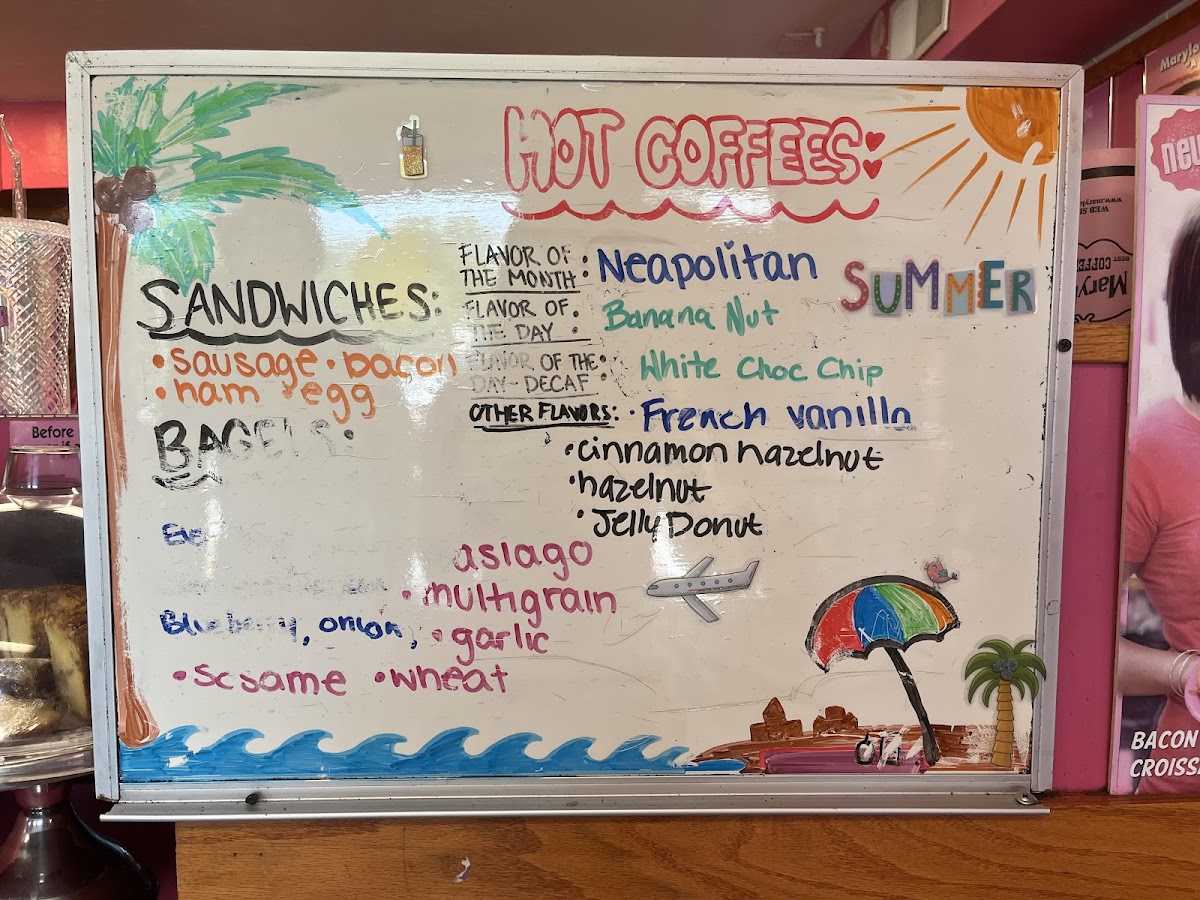 HOT COFFEES:
SUMMER
FLAVOR OF THE MONTH: Neapolitan
FLAVOR OF THE DAY: Banana Nut
FLAVOR OF THE DAY-DECAF: White Choc Chip
OTHER FLAVORS: • French vanilla
• cinnamon hazelnut
• hazelnut
• Jelly Donut
SANDWICHES:
• sausage • bacon
• ham • egg
BAGELS:
asiago
• multigrain
Blueberry, onion, • garlic
• sesame • wheat
Before
new
BACON
CROISS
WEB SI
www.marylo
Mary
BEST COFFE
Marylo